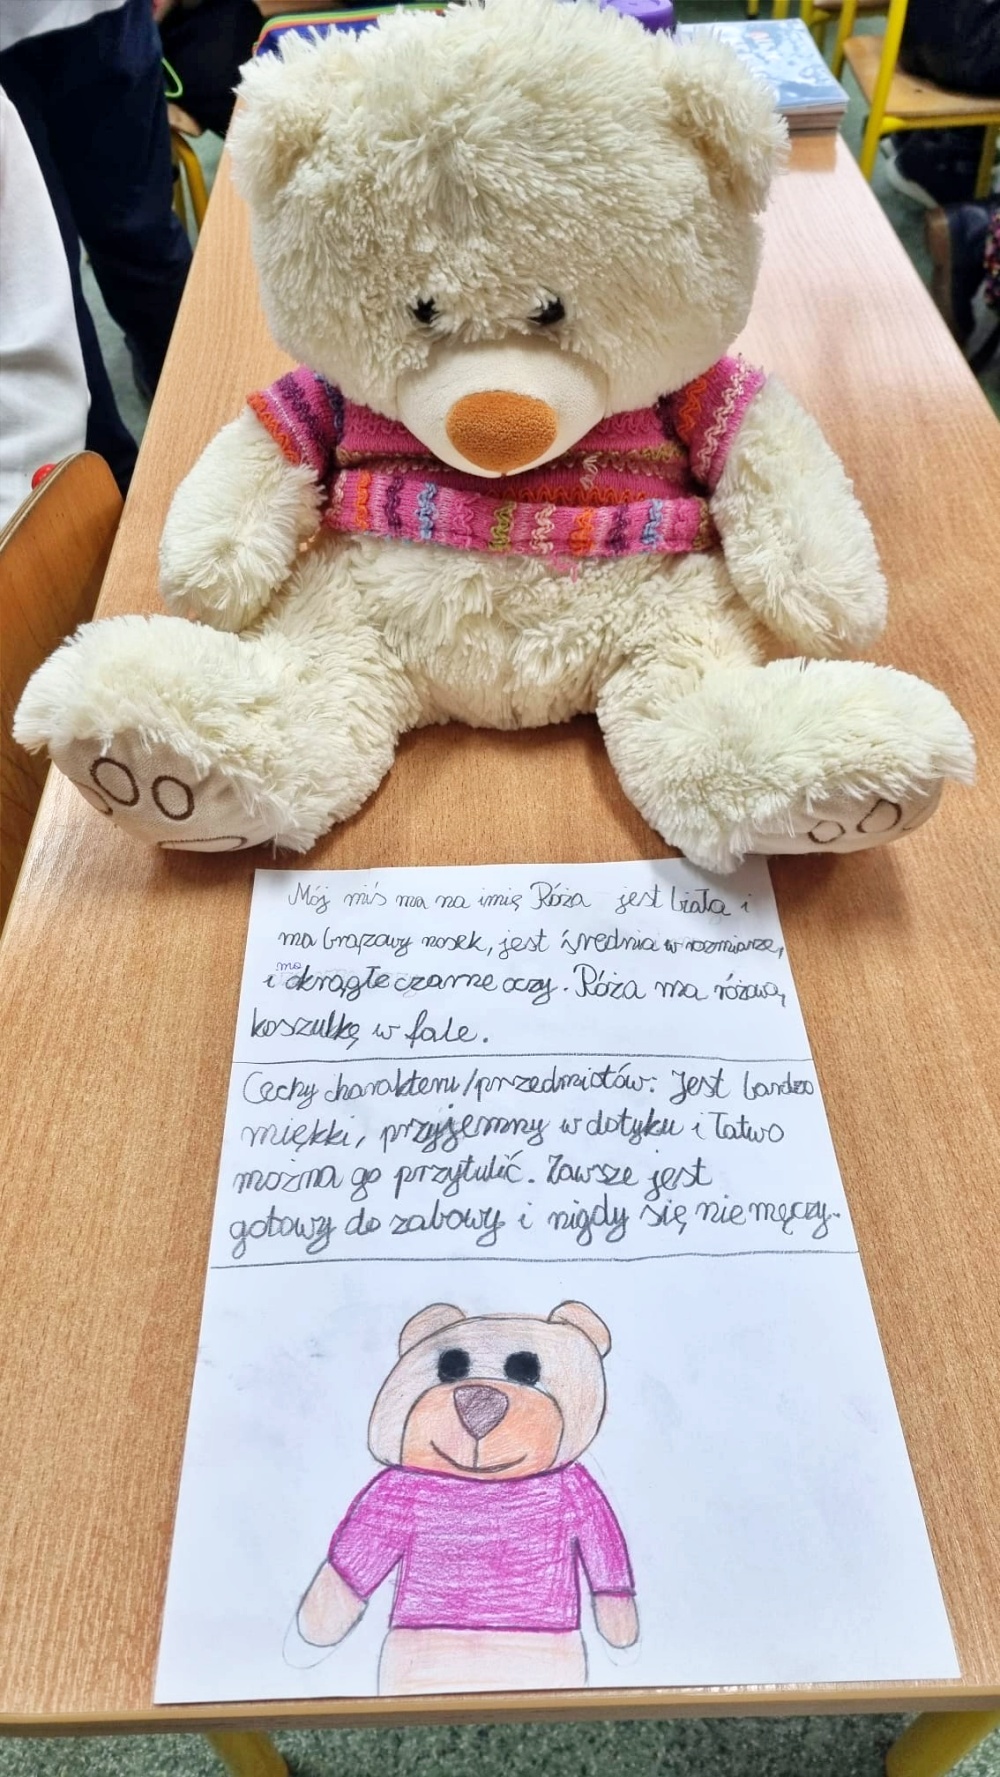 Mój miś ma na imię Róża jest biała i
ma brązowy nosek, jest średnia w rozmiarze,
ma
i okrągłe czarne oczy. Róża ma różową
koszulkę w fale.
Cechy charakteru/przedmiotów: Jest bardzo
miękki, przyjemny w dotyku i łatwo
można go przytulić. Zawsze jest
gotowy do zabawy i nigdy się nie męczy.